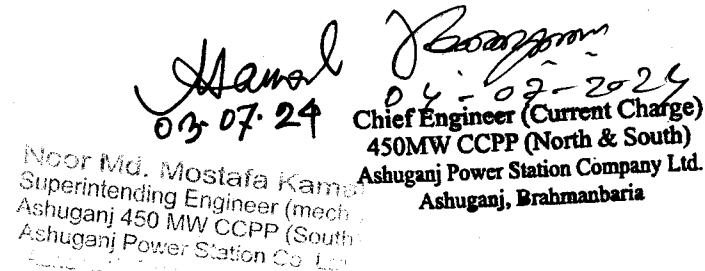 03.07.24
Noor Md. Mostafa Kama
Superintending Engineer (mech
Ashuganj 450 MW CCPP (South
Ashuganj Power Station Co. L
04-07-2024
Chief Engineer (Current Charge)
450MW CCPP (North & South)
Ashuganj Power Station Company Ltd.
Ashuganj, Brahmanbaria